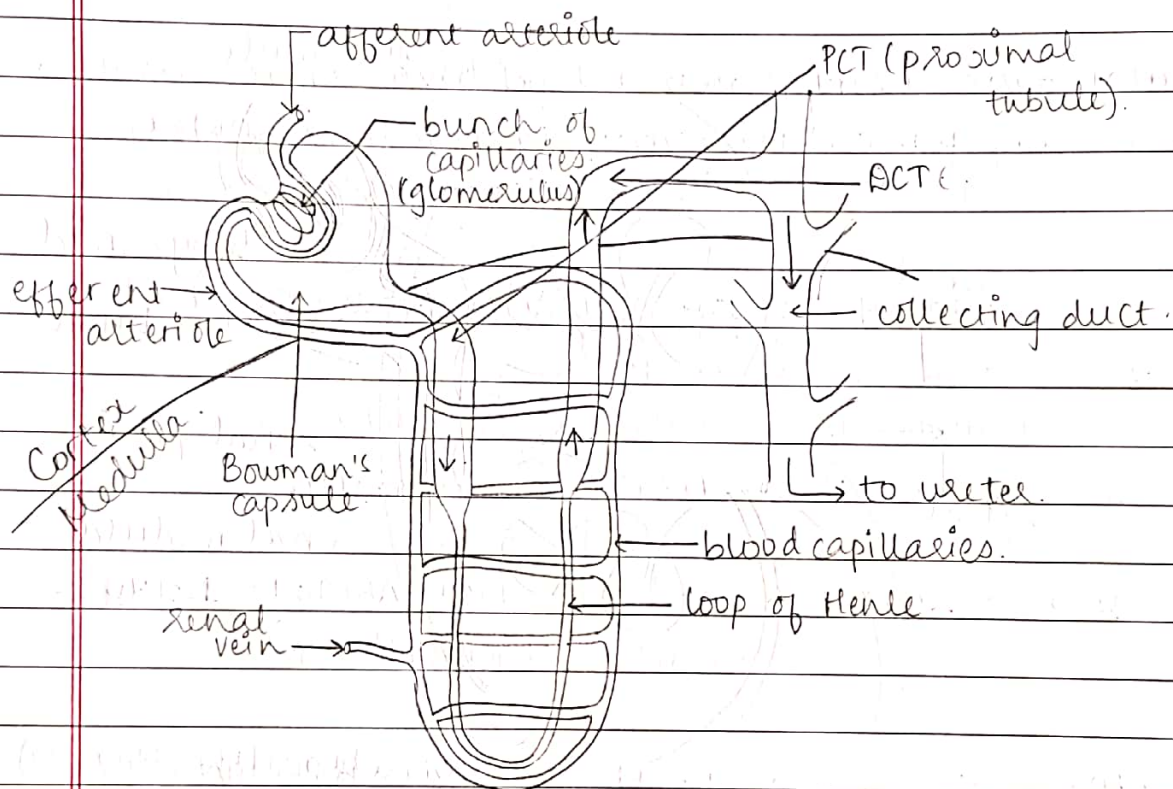 afferent arteriole
PCT (proximal
tubule).
bunch of
capillaries
(glomerulus)
DCT
efferent
arteriole
collecting duct.
Cortex
Medulla.
Bowman's
capsule
to ureter.
blood capillaries.
loop of Henle.
renal
vein